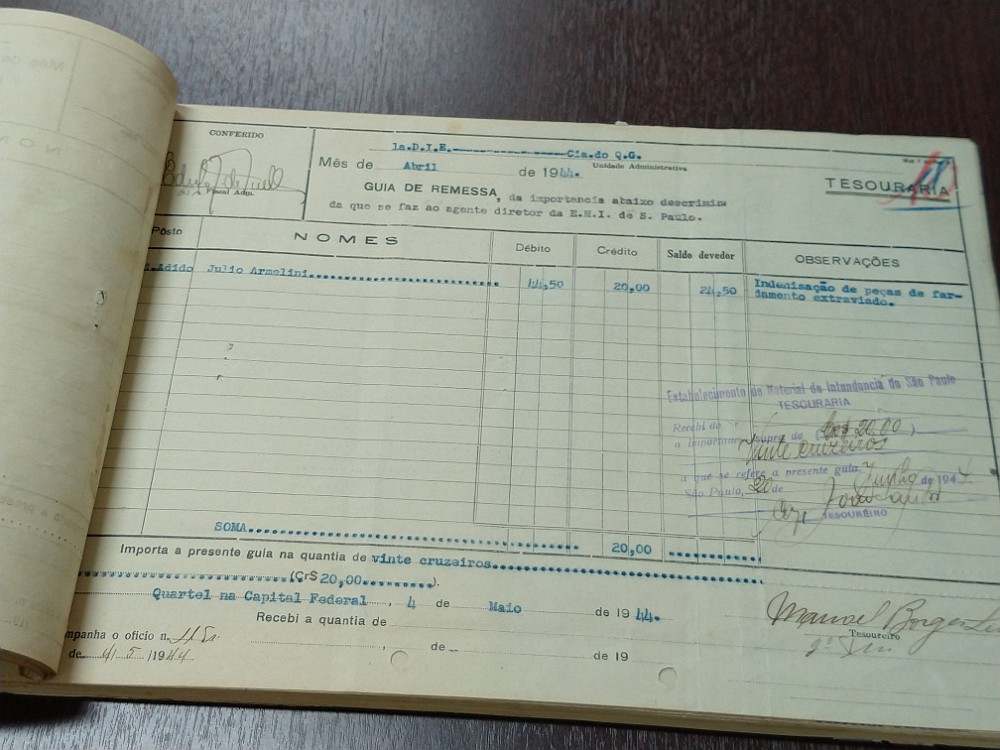 CONFERIDO
Fiscal Adm.
1a.D.I.E.-------------------Cia.do Q.G.
Unidade Administrativa
Mês de Abril de 1944.
GUIA DE REMESSA, da importancia abaixo descrimina
da que se faz ao agente diretor da E.M.I. de S. Paulo.
TESOURARIA
Pôsto NOMES Débito Crédito Saldo devedor OBSERVAÇÕES
.Adido Julio Armelini 44,50 20,00 24,50 Indenisação de peças de far-
damento extraviado.
Estabelecimento de Material de Intendencia de São Paulo
TESOURARIA
Recebi do
a importancia supra de (Cr$ 20,00)
Vinte cruzeiros
a que se refere a presente guia.
São Paulo, 20 de Junho de 1944
TESOUREIRO
SOMA 20,00
Importa a presente guia na quantia de vinte cruzeiros
(Cr$ 20,00.........).
Quartel na Capital Federal, 4 de Maio de 1944.
Recebi a quantia de
Manoel Borges
Tesoureiro
mpanha o oficio n.
, de de 19
de 4/5/1944